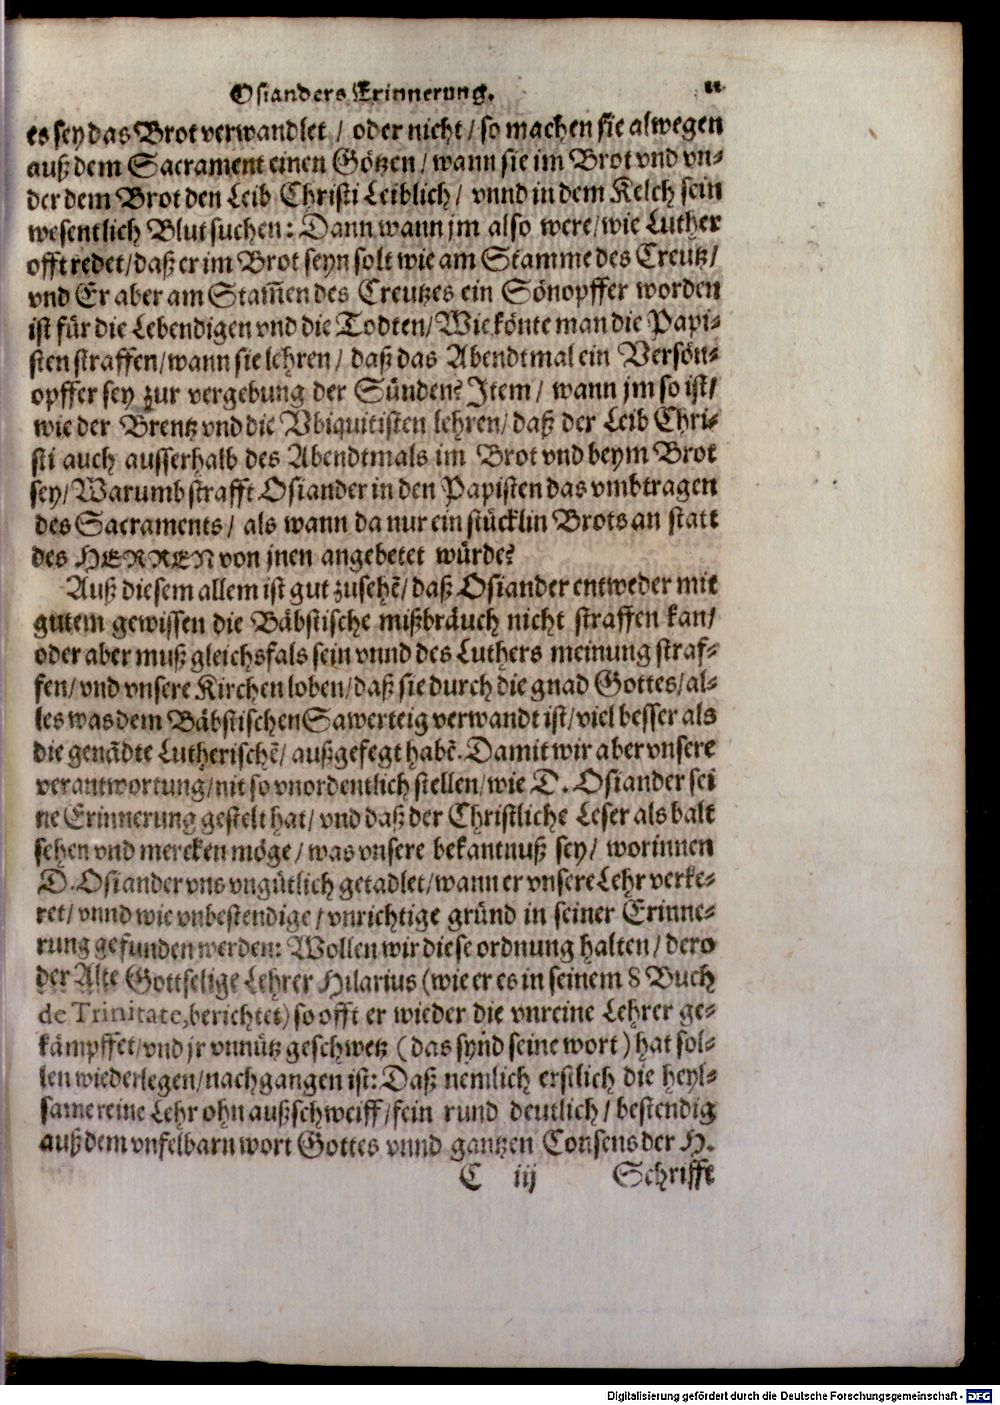 Osianders Erinnerung. 11
es sey das Brot verwandlet / oder nicht / so machen sie alwegen
auß dem Sacrament einen Götzen / wann sie im Brot vnd vn-
der dem Brot den Leib Christi Leiblich / vnnd in dem Kelch sein
wesentlich Blut suchen: Dann wann jm also were / wie Luther
offt redet / daß er im Brot seyn solt wie am Stamme des Creutz /
vnd Er aber am Stam̃en des Creutzes ein Sönopffer worden
ist für die Lebendigen vnd die Todten / Wie könte man die Papi-
sten straffen / wann sie lehren / daß das Abendtmal ein Versön-
opffer sey zur vergebung der Sünden? Item / wann jm so ist /
wie der Brentz vnd die Vbiquitisten lehren / daß der Leib Chri-
sti auch ausserhalb des Abendtmals im Brot vnd beym Brot
sey / Warumb strafft Osiander in den Papisten das vmbtragen
des Sacraments / als wann da nur ein stücklin Brots an statt
des HERREN von jnen angebetet würde?
Auß diesem allem ist gut zusehẽ / daß Osiander entweder mit
gutem gewissen die Bäbstische mißbräuch nicht straffen kan /
oder aber muß gleichsfals sein vnnd des Luthers meinung straf-
fen / vnd vnsere Kirchen loben / daß sie durch die gnad Gottes / al-
les was dem Bäbstischen Sawerteig verwandt ist / viel besser als
die genãdte Lutherischẽ / außgefegt habẽ. Damit wir aber vnsere
verantwortung / nit so vnordentlich stellen / wie D. Osiander sei
ne Erinnerung gestelt hat / vnd daß der Christliche Leser als balt
sehen vnd mercken möge / was vnsere bekantnuß sey / worinnen
D. Osiander vns vngütlich getadlet / wann er vnsere Lehr verke-
ret / vnnd wie vnbestendige / vnrichtige gründ in seiner Erinne-
rung gefunden werden: Wollen wir diese ordnung halten / dero
der Alte Gottselige Lehrer Hilarius (wie er es in seinem 8 Buch
de Trinitate, berichtet) so offt er wieder die vnreine Lehrer ge-
kämpffet / vnd jr vnnütz geschwetz (das synd seine wort) hat sol-
len wiederlegen / nachgangen ist: Daß nemlich erstlich die heyl-
same reine Lehr ohn außschweiff / fein rund deutlich / bestendig
auß dem vnfelbarn wort Gottes vnnd gantzen Consens der H.
C iij Schrifft
Digitalisierung gefördert durch die Deutsche Forschungsgemeinschaft - DFG